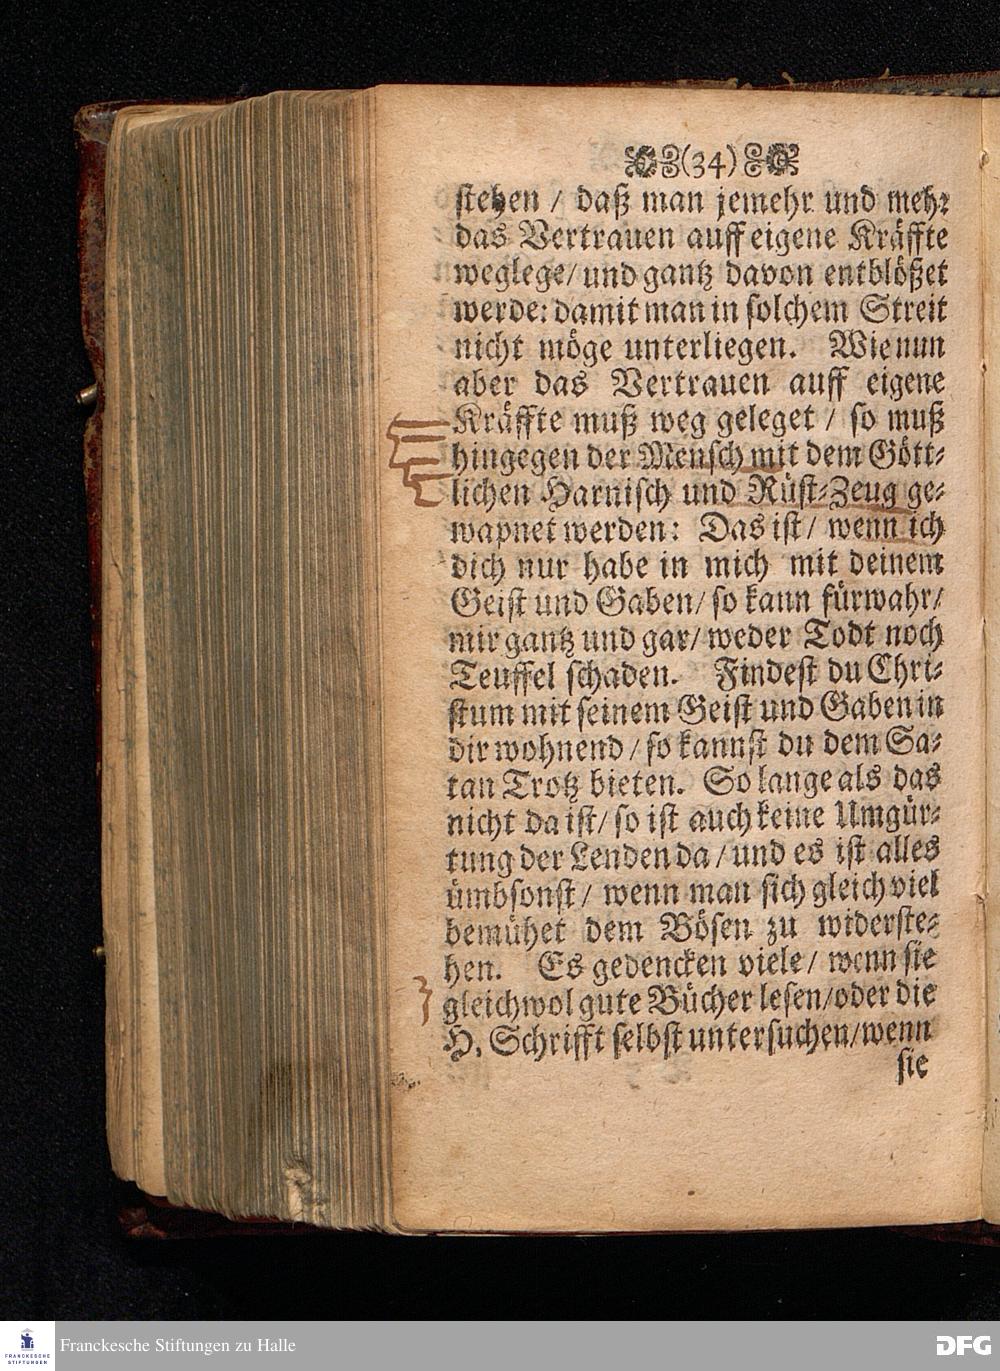 (34)
stehen / daß man jemehr und mehr
das Vertrauen auff eigene Kräffte
weglege/ und gantz davon entblößet
werde: damit man in solchem Streit
nicht möge unterliegen. Wie nun
aber das Vertrauen auff eigene
Kräffte muß weg geleget / so muß
hingegen der Mensch mit dem Gött-
lichen Harnisch und Rüst-Zeug ge-
wapnet werden: Das ist/ wenn ich
dich nur habe in mich mit deinem
Geist und Gaben/ so kann fürwahr/
mir gantz und gar/ weder Todt noch
Teuffel schaden. Findest du Chri-
stum mit seinem Geist und Gaben in
dir wohnend / so kannst du dem Sa-
tan Trotz bieten. So lange als das
nicht da ist/ so ist auch keine Umgür-
tung der Lenden da / und es ist alles
ümbsonst/ wenn man sich gleich viel
bemühet dem Bösen zu widerste-
hen. Es gedencken viele/ wenn sie
gleichwol gute Bücher lesen/oder die
H. Schrifft selbst untersuchen/wenn
sie
FRANCKESCHE STIFTUNGEN
Franckesche Stiftungen zu Halle
DFG